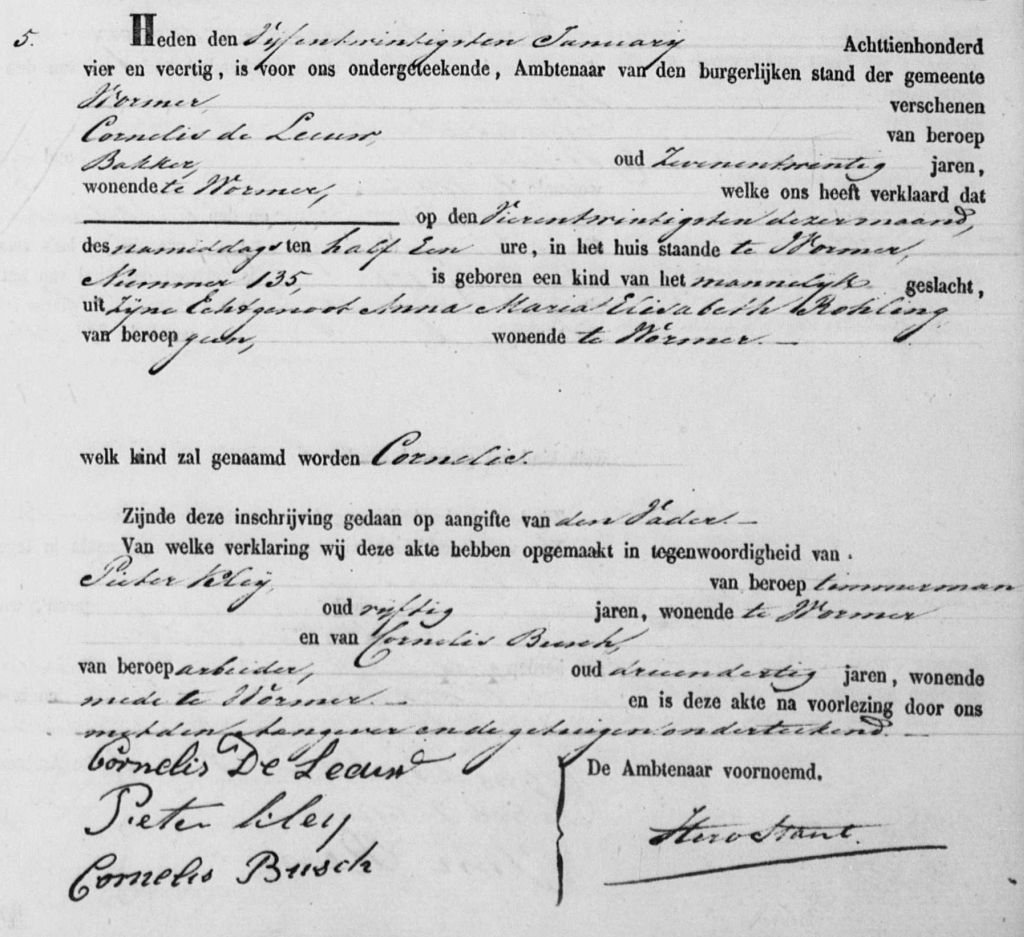 5. Heden den Vijfentwintigsten January Achttienhonderd
vier en veertig, is voor ons ondergeteekende, Ambtenaar van den burgerlijken stand der gemeente
Wormer, verschenen
Cornelis de Leeuw, van beroep
Bakker, oud Zevenentwintig jaren,
wonende te Wormer, welke ons heeft verklaard dat
op den Vierentwintigsten dezer maand,
des namiddags ten half Een ure, in het huis staande te Wormer,
Nummer 135, is geboren een kind van het mannelyk geslacht,
uit zyne Echtgenoot Anna Maria Elisabeth Rohling
van beroep geen, wonende te Wormer.
welk kind zal genaamd worden Cornelis.
Zijnde deze inschrijving gedaan op aangifte van den Vader.
Van welke verklaring wij deze akte hebben opgemaakt in tegenwoordigheid van
Pieter Kleij, van beroep timmerman
oud vyftig jaren, wonende te Wormer
en van Cornelis Busch,
van beroep arbeider, oud drieendertig jaren, wonende
mede te Wormer. en is deze akte na voorlezing door ons
met den aangever en de getuigen onderteekend.
Cornelis De Leeuw De Ambtenaar voornoemd,
Pieter Kley
Cornelis Busch